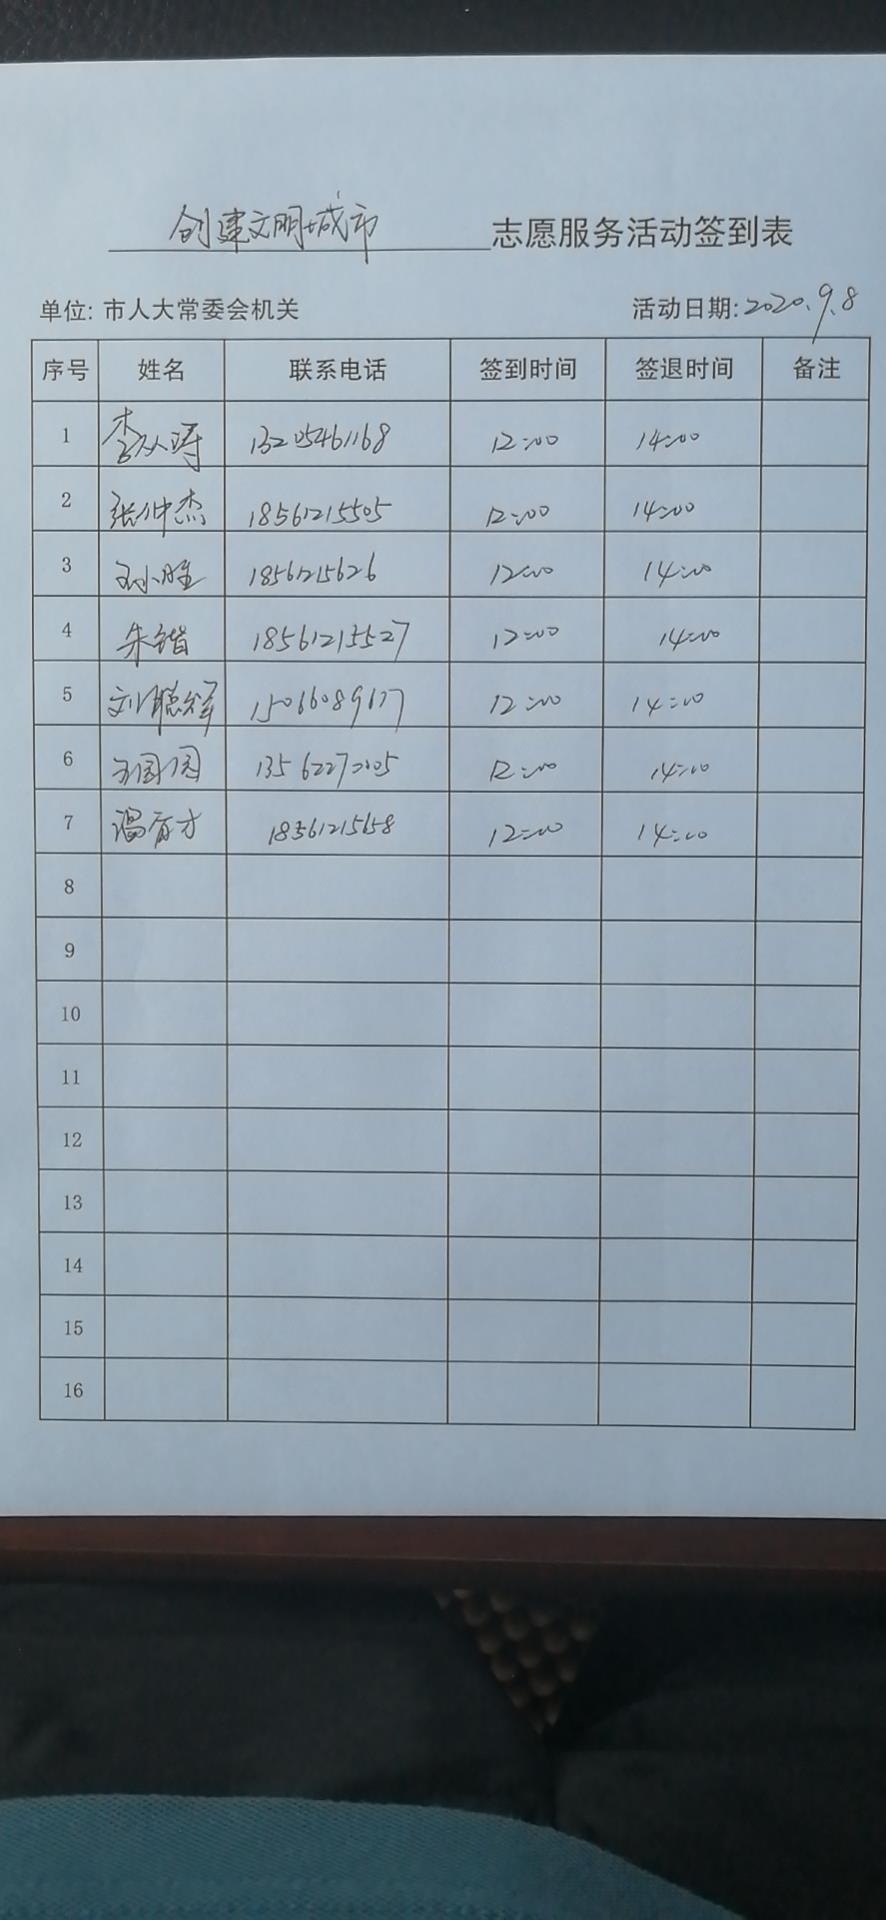 创建文明城市志愿服务活动签到表
单位: 市人大常委会机关 活动日期: 2020.9.8
序号 姓名 联系电话 签到时间 签退时间 备注
1 李从涛 13205461168 12:00 14:00
2 张仲杰 18561215505 12:00 14:00
3 王小胜 18561215626 12:00 14:00
4 朱锴 18561215527 12:00 14:00
5 刘聪祥 15066089677 12:00 14:00
6 王园园 13562272005 12:00 14:00
7 温有才 18561215658 12:00 14:00
8
9
10
11
12
13
14
15
16